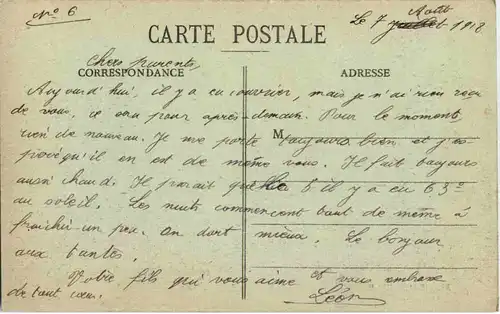 N° 6
Le 7 Août 1918
CARTE POSTALE
Chers parents,
CORRESPONDANCE
ADRESSE
Aujourd'hui, il y a eu courrier, mais je n'ai rien reçu
de vous, ce sera pour après-demain. Pour le moment,
rien de nouveau. Je me porte toujours bien et j'es-
M
père qu'il en est de même vous. Il fait toujours
aussi chaud. Il parait que le 5 il y a eu 63°
au soleil. Les nuits commencent tout de même à
fraichir un peu. On dort mieux. Le bonjour
aux tantes.
Votre fils qui vous aime et vous embrasse
de tout cœur.
Léon